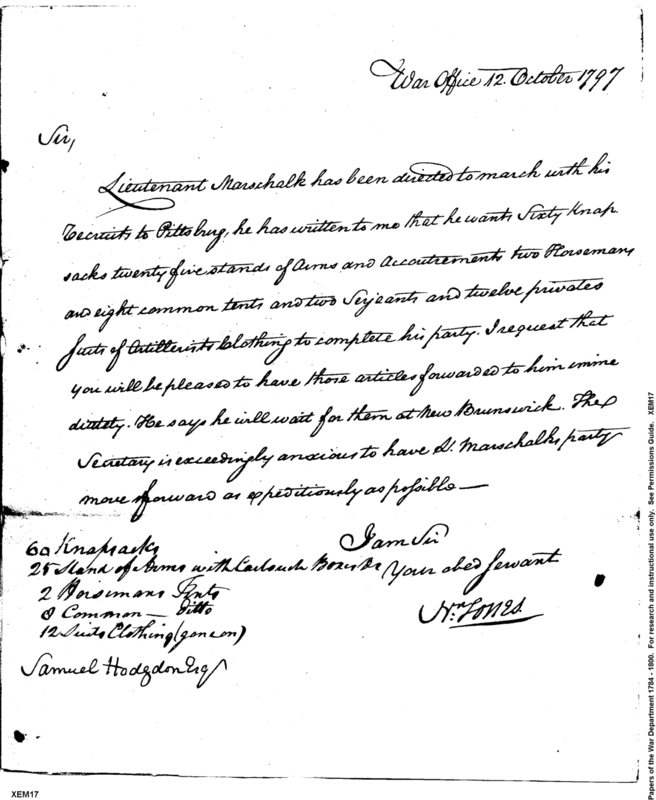 War Office 12. October 1797
Sir,
Lieutenant Marschalk has been directed to march with his
Recruits to Pittsburg, he has written to me that he wants Sixty Knap
sacks twenty five stands of Arms and Accoutrements two Horsemans
and eight common tents and two Serjeants and twelve privates
suits of Artillerists Clothing to complete his party. I request that
you will be pleased to have those articles forwarded to him imme
diately. He says he will wait for them at New Brunswick. The
Secretary is exceedingly anxious to have Lt. Marschalks party
move forward as expeditiously as possible —
I am Sir
Your obed Servant
Nn. Jones.
60 Knapsacks
25 Stand of Arms with Cartouch Boxes &c
2 Horsemans Tents
8 Common — Ditto
12 Suits Clothing (gone on)
Samuel Hodgdon Esqr
XEM17
Papers of the War Department 1784 - 1800. For research and instructional use only. See Permissions Guide. XEM17